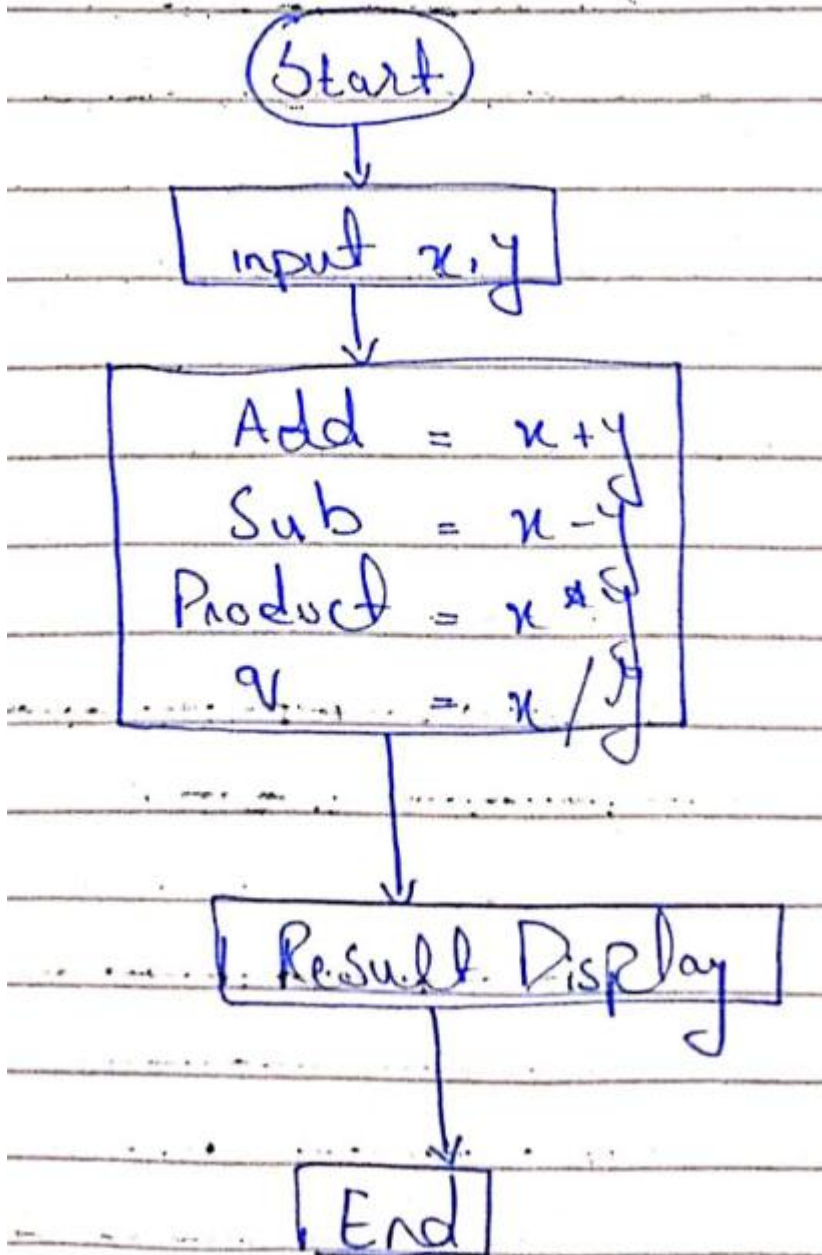 Start
input x, y
Add = x + y
Sub = x - y
Product = x * y
q = x / y
Result Display
End